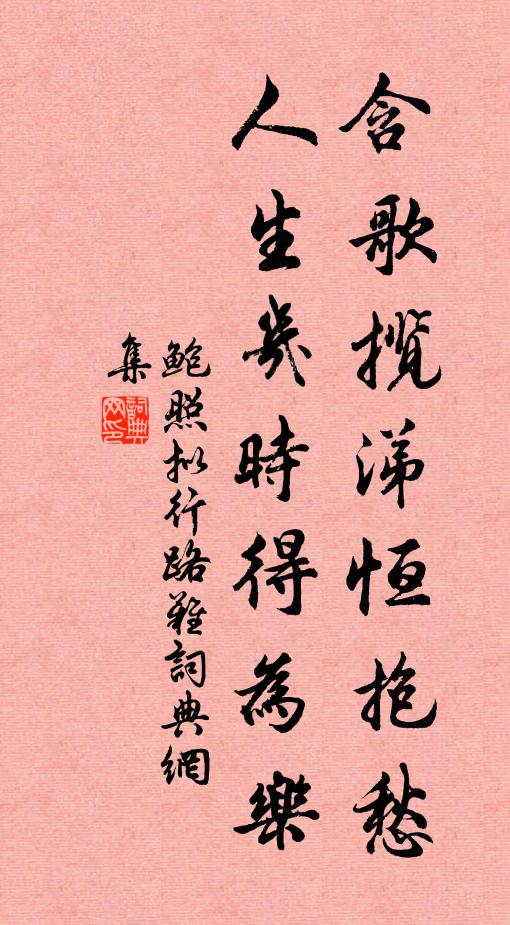 含歌攬涕恒抱愁
人生幾時得為樂
鮑照拟行路難詞典網
集
詞典
网印